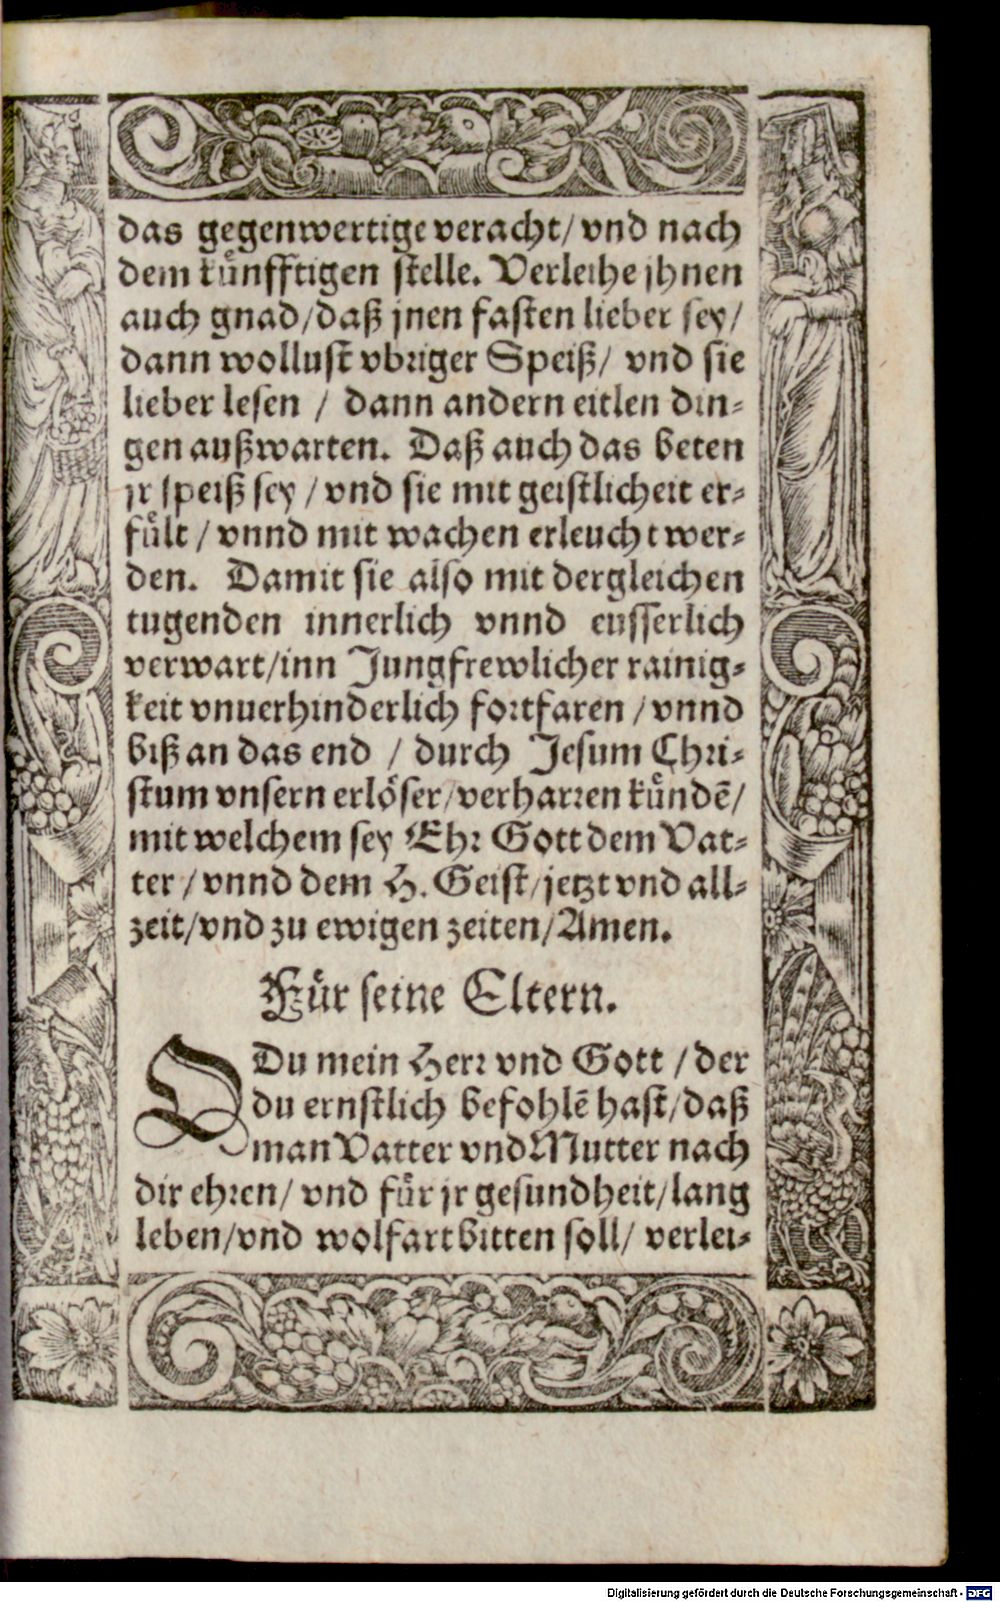 das gegenwertige veracht/ vnd nach
dem kuͤnfftigen stelle. Verleihe jhnen
auch gnad/daß jnen fasten lieber sey/
dann wollust vbriger Speiß/ vnd sie
lieber lesen / dann andern eitlen din⸗
gen außwarten. Daß auch das beten
jr speiß sey / vnd sie mit geistlicheit er⸗
fuͤlt / vnnd mit wachen erleucht wer⸗
den. Damit sie also mit dergleichen
tugenden innerlich vnnd eusserlich
verwart/inn Jungfrewlicher rainig⸗
keit vnuerhinderlich fortfaren / vnnd
biß an das end / durch Jesum Chri⸗
stum vnsern erloͤser/verharren kuͤndē/
mit welchem sey Ehr Gott dem Vat⸗
ter / vnnd dem H. Geist/jetzt vnd all⸗
zeit/vnd zu ewigen zeiten/Amen.
Fuͤr seine Eltern.
O Du mein Herr vnd Gott / der
du ernstlich befohlē hast/daß
man Vatter vnd Mutter nach
dir ehren/ vnd fuͤr jr gesundheit/lang
leben/vnd wolfart bitten soll/ verlei⸗
Digitalisierung gefördert durch die Deutsche Forschungsgemeinschaft - DFG